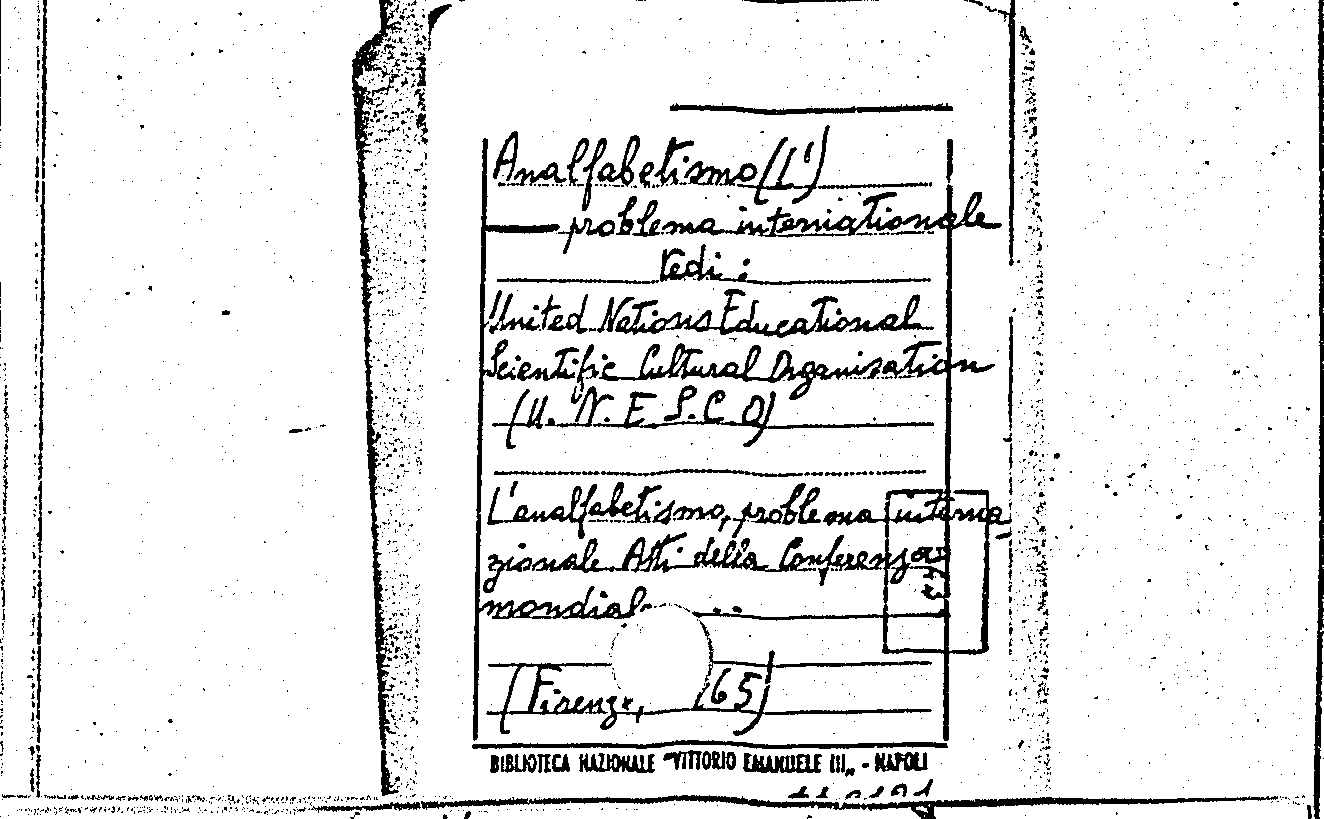 Analfabetismo (L')
— problema internationale
Vedi:
United Nations Educational
Scientific Cultural Organisation
(U. N. E. S. C. O)
L'analfabetismo, problema interna
zionale Atti della Conferenza
mondiale ...
(Firenze, 1965)
BIBLIOTECA NAZIONALE "VITTORIO EMANUELE III„ - NAPOLI